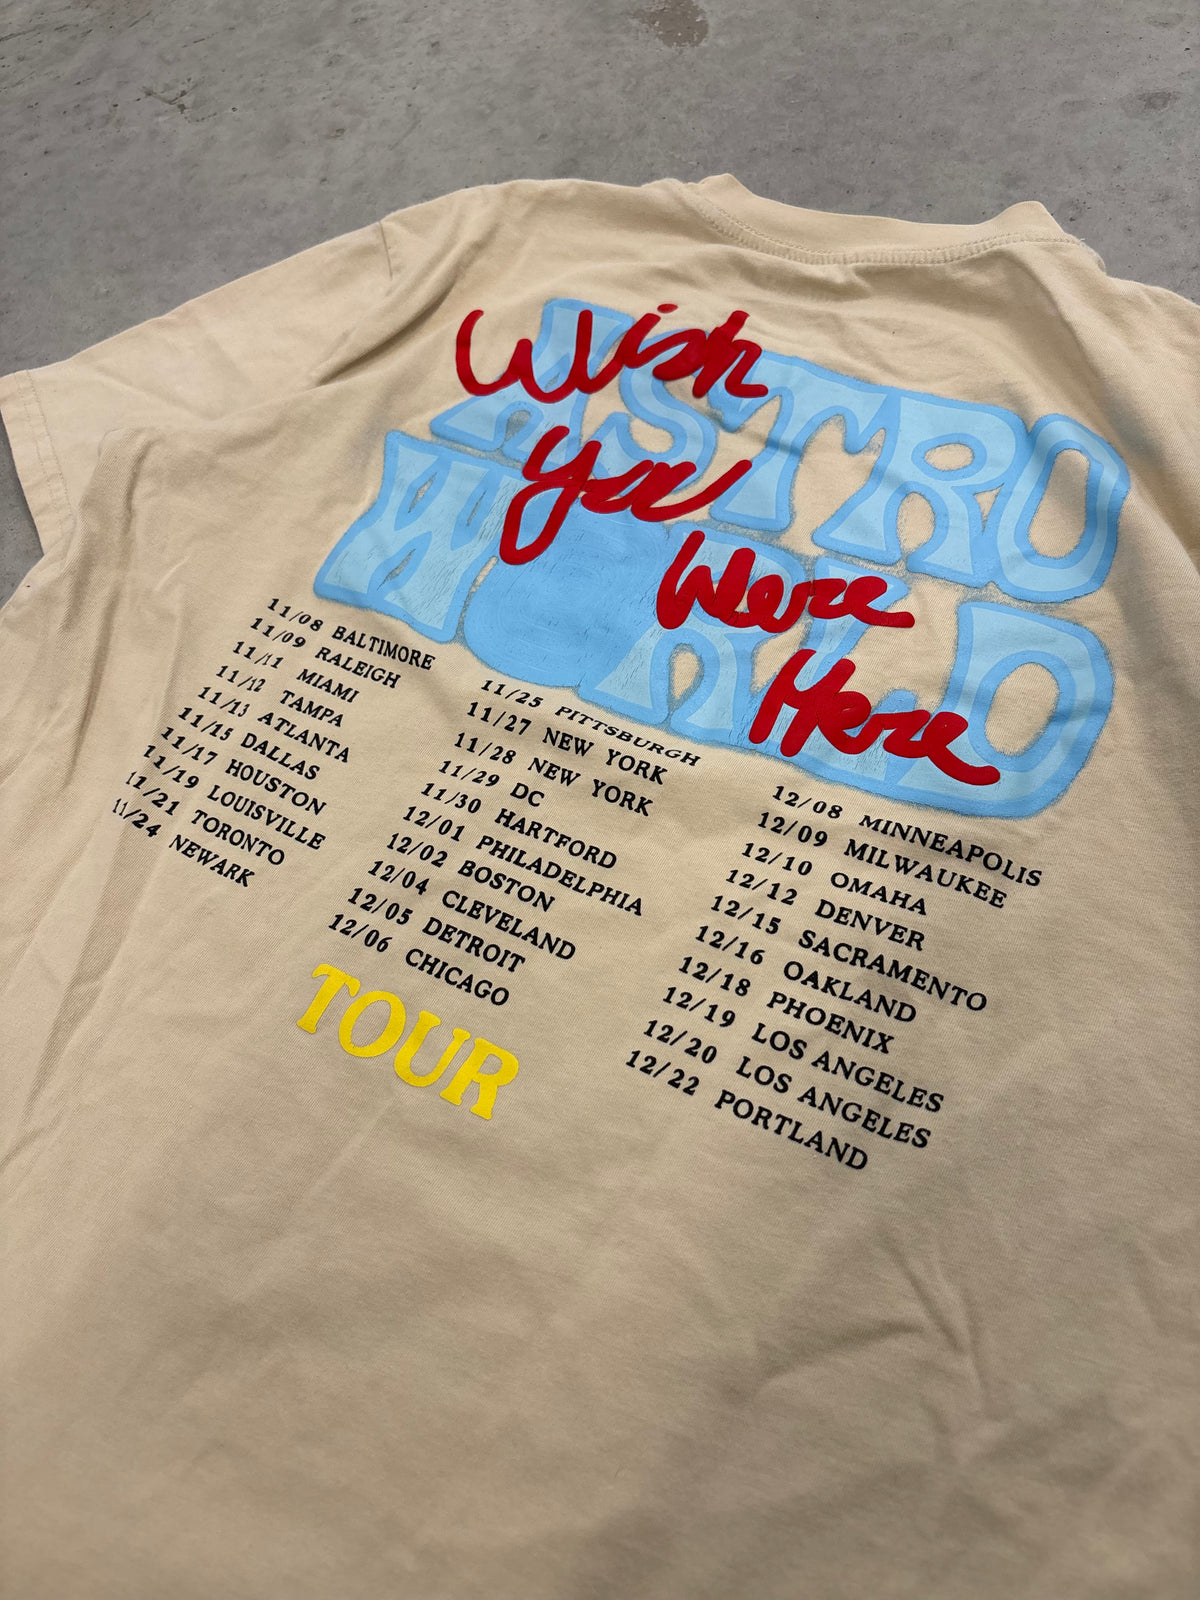 Wish
ASTRO
You
WORLD
Were
Here
11/08 BALTIMORE
11/09 RALEIGH
11/11 MIAMI
11/12 TAMPA
11/13 ATLANTA
11/15 DALLAS
11/17 HOUSTON
11/19 LOUISVILLE
11/21 TORONTO
11/24 NEWARK
11/25 PITTSBURGH
11/27 NEW YORK
11/28 NEW YORK
11/29 DC
11/30 HARTFORD
12/01 PHILADELPHIA
12/02 BOSTON
12/04 CLEVELAND
12/05 DETROIT
12/06 CHICAGO
12/08 MINNEAPOLIS
12/09 MILWAUKEE
12/10 OMAHA
12/12 DENVER
12/15 SACRAMENTO
12/16 OAKLAND
12/18 PHOENIX
12/19 LOS ANGELES
12/20 LOS ANGELES
12/22 PORTLAND
TOUR